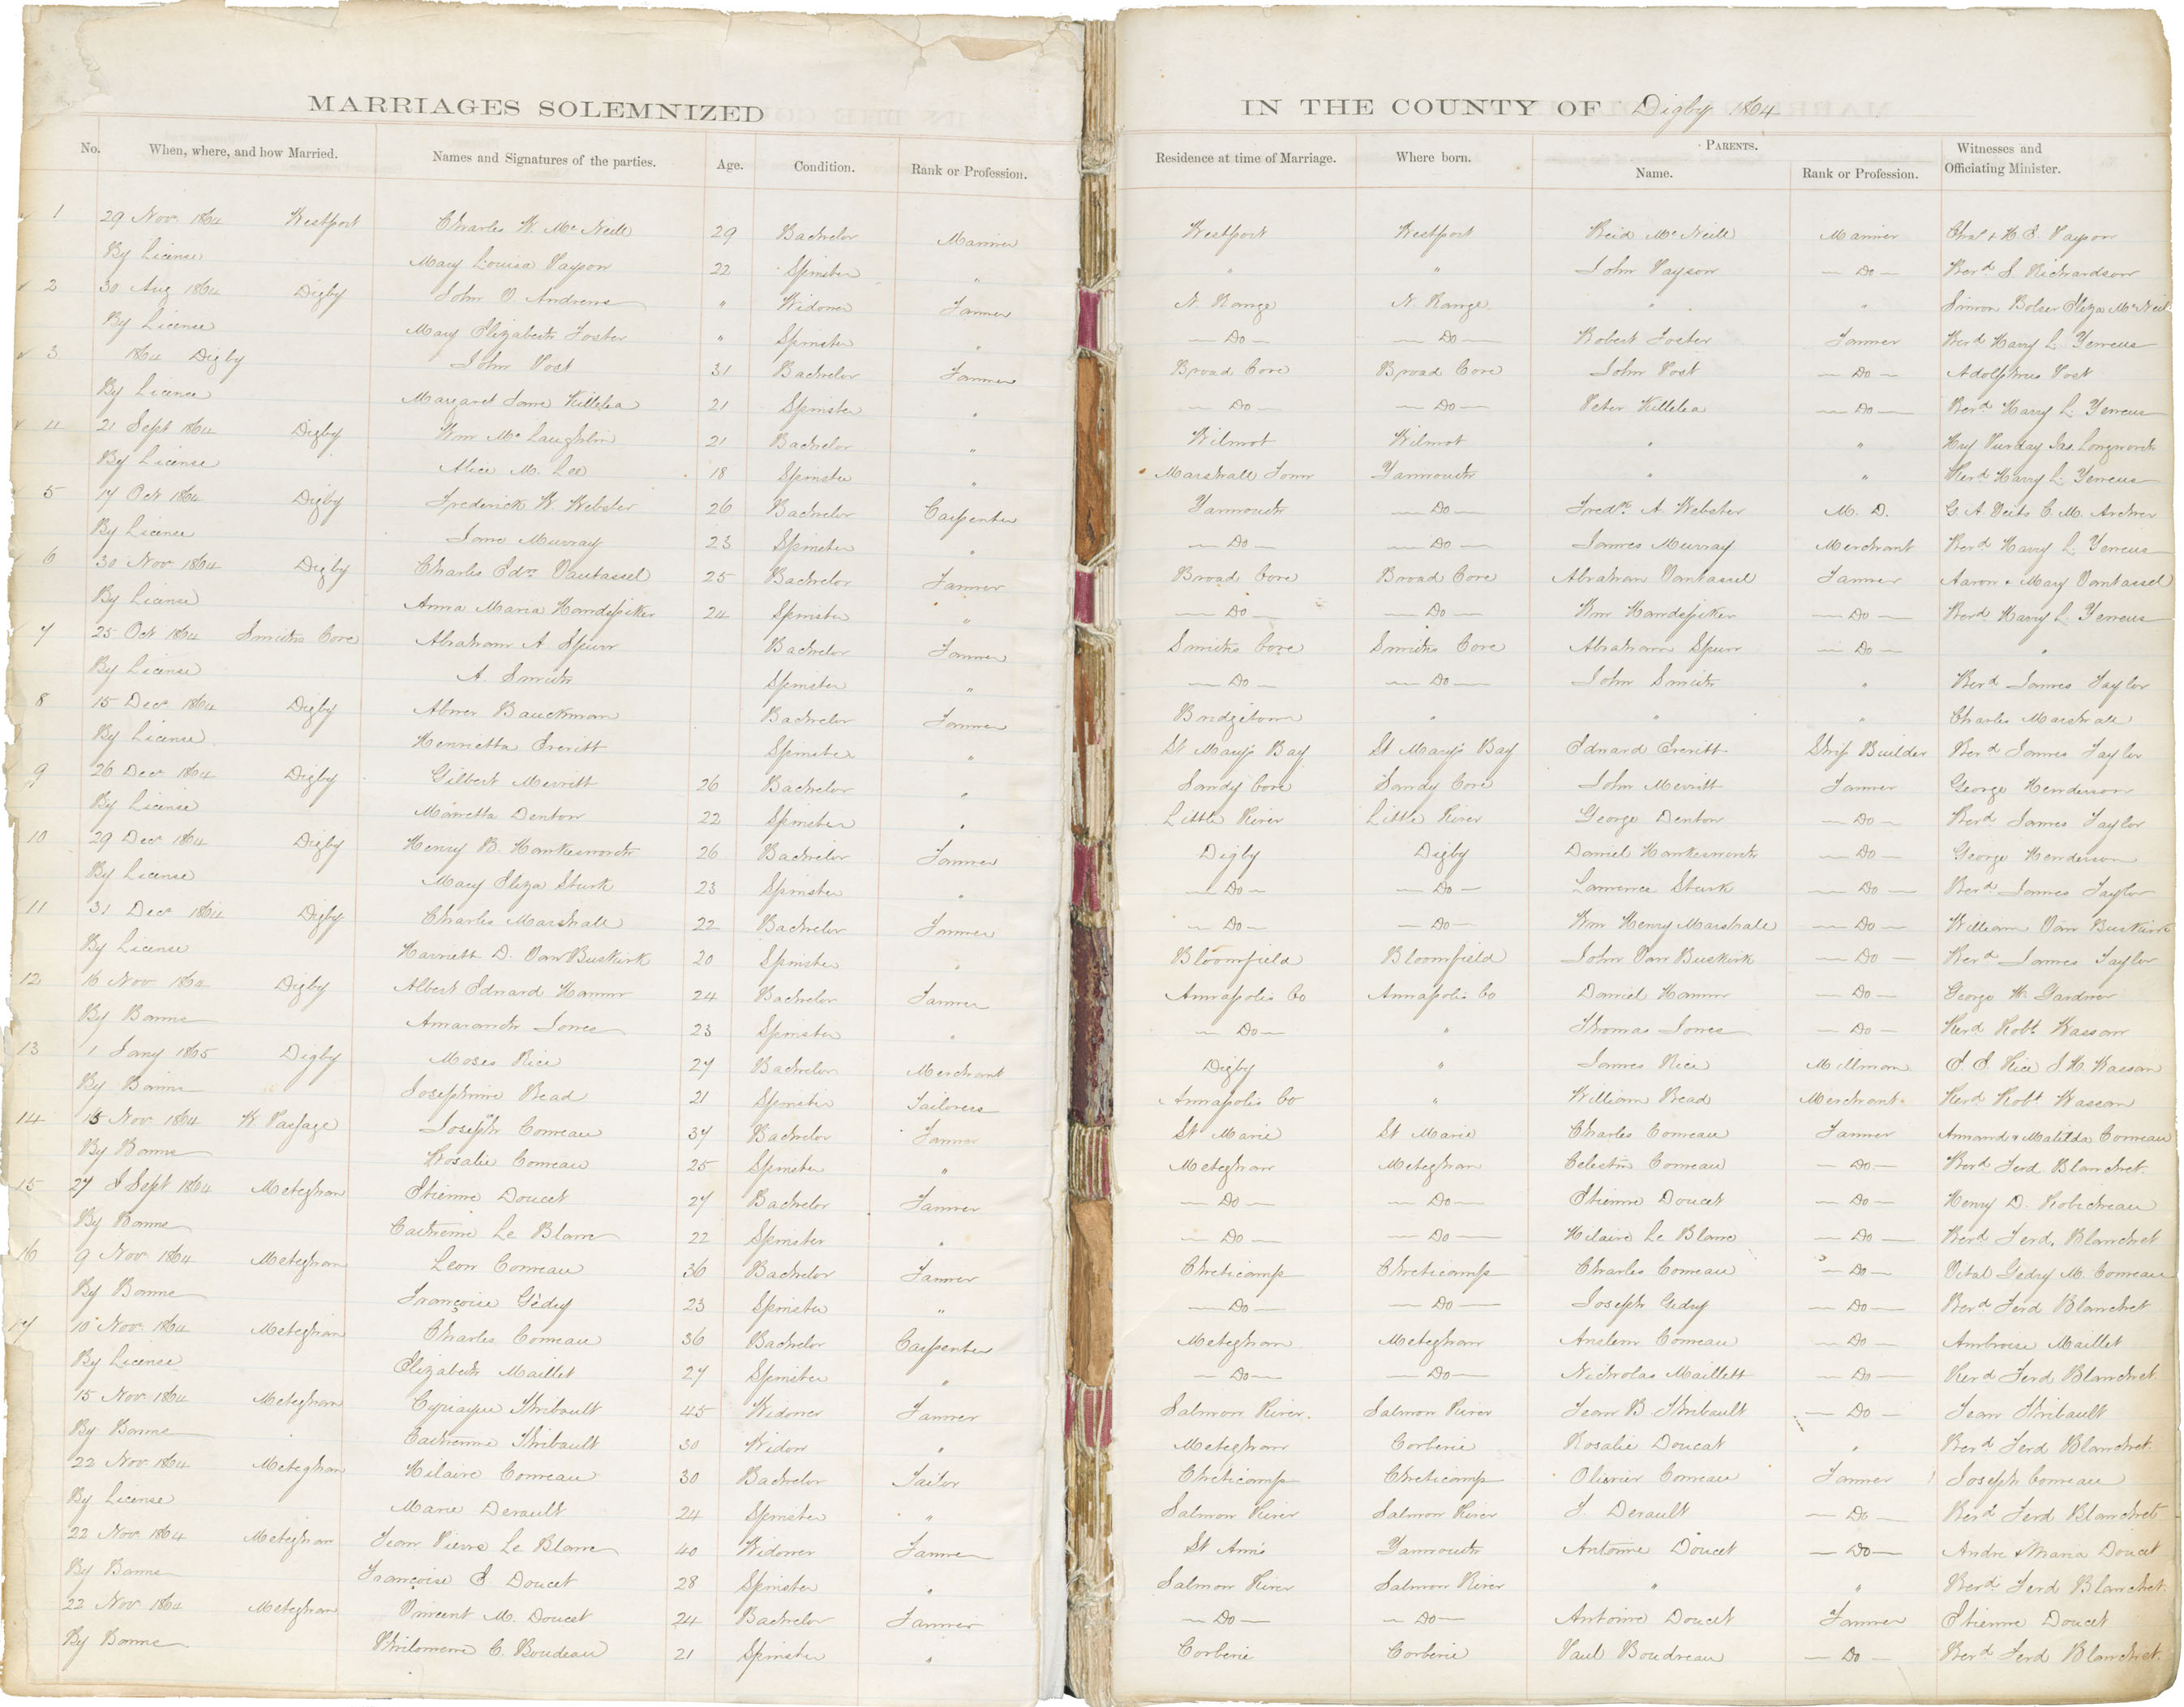 MARRIAGES SOLEMNIZED IN THE COUNTY OF Digby 1864
No. When, where, and how Married. Names and Signatures of the parties. Age. Condition. Rank or Profession. Residence at time of Marriage. Where born. PARENTS. Name. Rank or Profession. Witnesses and Officiating Minister.
1 29 Nov. 1864 Westport Charles W. Mc Neill 29 Bachelor Mariner Westport Westport Reid Mc Neill Mariner Chas & H. E. Payson
By License Mary Louisa Payson 22 Spinster " " " John Payson — Do — Revd S. Richardson
2 30 Aug 1864 Digby John O. Andrews " Widower Farmer N. Range N. Range " " Simon Bolser Eliza Mc Neil
By License Mary Elizabeth Foster " Spinster " — Do — — Do — Robert Foster Farmer Revd Harry L. Yewens
3 1864 Digby John Post 31 Bachelor Farmer Broad Cove Broad Cove John Post — Do — Adolphus Post
By License Margaret Jane Killelea 21 Spinster " — Do — — Do — Peter Killelea — Do — Revd Harry L. Yewens
4 21 Sept 1864 Digby Wm Mc Laughlin 21 Bachelor " Wilmot Wilmot " " Hy Purday Jas. Longworth
By License Alice M. Lee 18 Spinster " Marshall Town Yarmouth " " Revd Harry L. Yewens
5 17 Oct 1864 Digby Frederick W. Webster 26 Bachelor Carpenter Yarmouth — Do — Fredk A. Webster M. D. G. A. C. M. Archer
By License Jane Murray 23 Spinster " — Do — — Do — James Murray Merchant Revd Harry L. Yewens
6 30 Nov 1864 Digby Charles Edn Vantassel 25 Bachelor Farmer Broad Cove Broad Cove Abraham Vantassel Farmer Aaron & Mary Vantassel
By License Anna Maria Handspiker 24 Spinster " — Do — — Do — Wm Handspiker — Do — Revd Harry L. Yewens
7 25 Oct 1864 Smiths Cove Abraham A Spurr Bachelor Farmer Smiths Cove Smiths Cove Abraham Spurr — Do — "
By License A. Smith Spinster " — Do — — Do — John Smith " Revd James Taylor
8 15 Decr 1864 Digby Abner Bauckman Bachelor Farmer Bridgetown " " " Charles Marshall
By License Henrietta Everitt Spinster " St Mary's Bay St Mary's Bay Edward Everitt Ship Builder Revd James Taylor
9 26 Decr 1864 Digby Gilbert Merritt 26 Bachelor " Sandy Cove Sandy Cove John Merritt Farmer George Henderson
By License Marietta Denton 22 Spinster " Little River Little River George Denton — Do — Revd James Taylor
10 29 Decr 1864 Digby Henry B. Hawkesworth 26 Bachelor Farmer Digby Digby Daniel Hawkesworth — Do — George Henderson
By License Mary Eliza Sturk 23 Spinster " — Do — — Do — Lawrence Sturk — Do — Revd James Taylor
11 31 Decr 1864 Digby Charles Marshall 22 Bachelor Farmer — Do — — Do — Wm Henry Marshall — Do — William Van Buskirk
By License Harriett D. Van Buskirk 20 Spinster " Bloomfield Bloomfield John Van Buskirk — Do — Revd James Taylor
12 16 Nov 1864 Digby Albert Edward Hamm 24 Bachelor Farmer Annapolis Co Annapolis Co Daniel Hamm — Do — George W. Gardner
By Banns Amaranth Jones 23 Spinster " — Do — " Thomas Jones — Do — Revd Robt Wasson
13 1 Jany 1865 Digby Moses Rice 27 Bachelor Merchant Digby " James Rice Millman E. E. Rice J. H. Wasson
By Banns Josephine Read 21 Spinster Tailoress Annapolis Co " William Read Merchant Revd Robt Wasson
14 15 Nov 1864 W. Passage Joseph Comeau 37 Bachelor Farmer St Marie St Marie Charles Comeau Farmer Armand & Matilda Comeau
By Banns Rosalie Comeau 25 Spinster " Meteghan Meteghan Celestin Comeau — Do — Revd Ferd Blanchet
15 27 Sept 1864 Meteghan Etienne Doucet 27 Bachelor Farmer — Do — — Do — Etienne Doucet — Do — Henry D. Robicheau
By Banns Catherine Le Blanc 22 Spinster " — Do — — Do — Hilaire Le Blanc — Do — Revd Ferd. Blanchet
16 9 Nov 1864 Meteghan Leon Comeau 36 Bachelor Farmer Cheticamp Cheticamp Charles Comeau — Do — Vital Gedry M. Comeau
By Banns Françoise Gèdry 23 Spinster " — Do — — Do — Joseph Gedry — Do — Revd Ferd Blanchet
17 10 Nov. 1864 Meteghan Charles Comeau 36 Bachelor Carpenter Meteghan Meteghan Anslem Comeau — Do — Ambroise Maillet
By License Elizabeth Maillet 27 Spinster " — Do — — Do — Nicholas Maillett — Do — Revd Ferd Blanchet
15 Nov. 1864 Meteghan Cyriaque Thibault 45 Widower Farmer Salmon River. Salmon River Jean B. Thibault — Do — Jean Thibault
By Banns Catherine Thibault 30 Widow " Meteghan Corberie Rosalie Doucet " Revd Ferd Blanchet
22 Nov. 1864 Meteghan Hilaire Comeau 30 Bachelor Tailor Cheticamp Cheticamp Olivier Comeau Farmer Joseph Comeau
By License Marie Derault 24 Spinster " Salmon River Salmon River J. Derault — Do — Revd Ferd Blanchet
22 Nov. 1864 Meteghan Jean Pierre Le Blanc 40 Widower Farmer St Ann's Yarmouth Antoine Doucet — Do — Andre & Maria Doucet
By Banns Françoise E. Doucet 28 Spinster " Salmon River Salmon River " " Revd Ferd Blanchet
22 Nov 1864 Meteghan Vincent M. Doucet 24 Bachelor Farmer — Do — — Do — Antoine Doucet Farmer Etienne Doucet
By Banns Philomene C. Boudeau 21 Spinster " Corberie Corberie Paul Boudreau — Do — Revd Ferd Blanchet